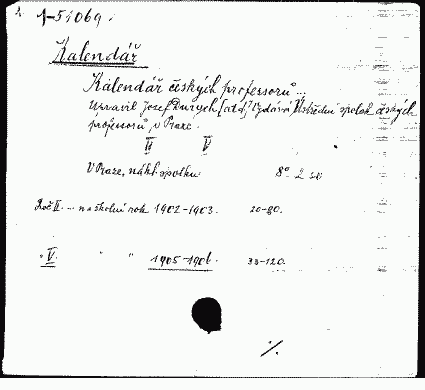 1-51069.
Kalendář
Kalendář českých professorů...
Upravil Josef Durych [atd.] Vydává Ústřední spolek českých
professorů v Praze.
II V
V Praze, nákl. spolku 8° 2 sv
Roč II. ... na školní rok 1902-1903. 20-80.
" V. " " 1905-1906. 33-120.
./.